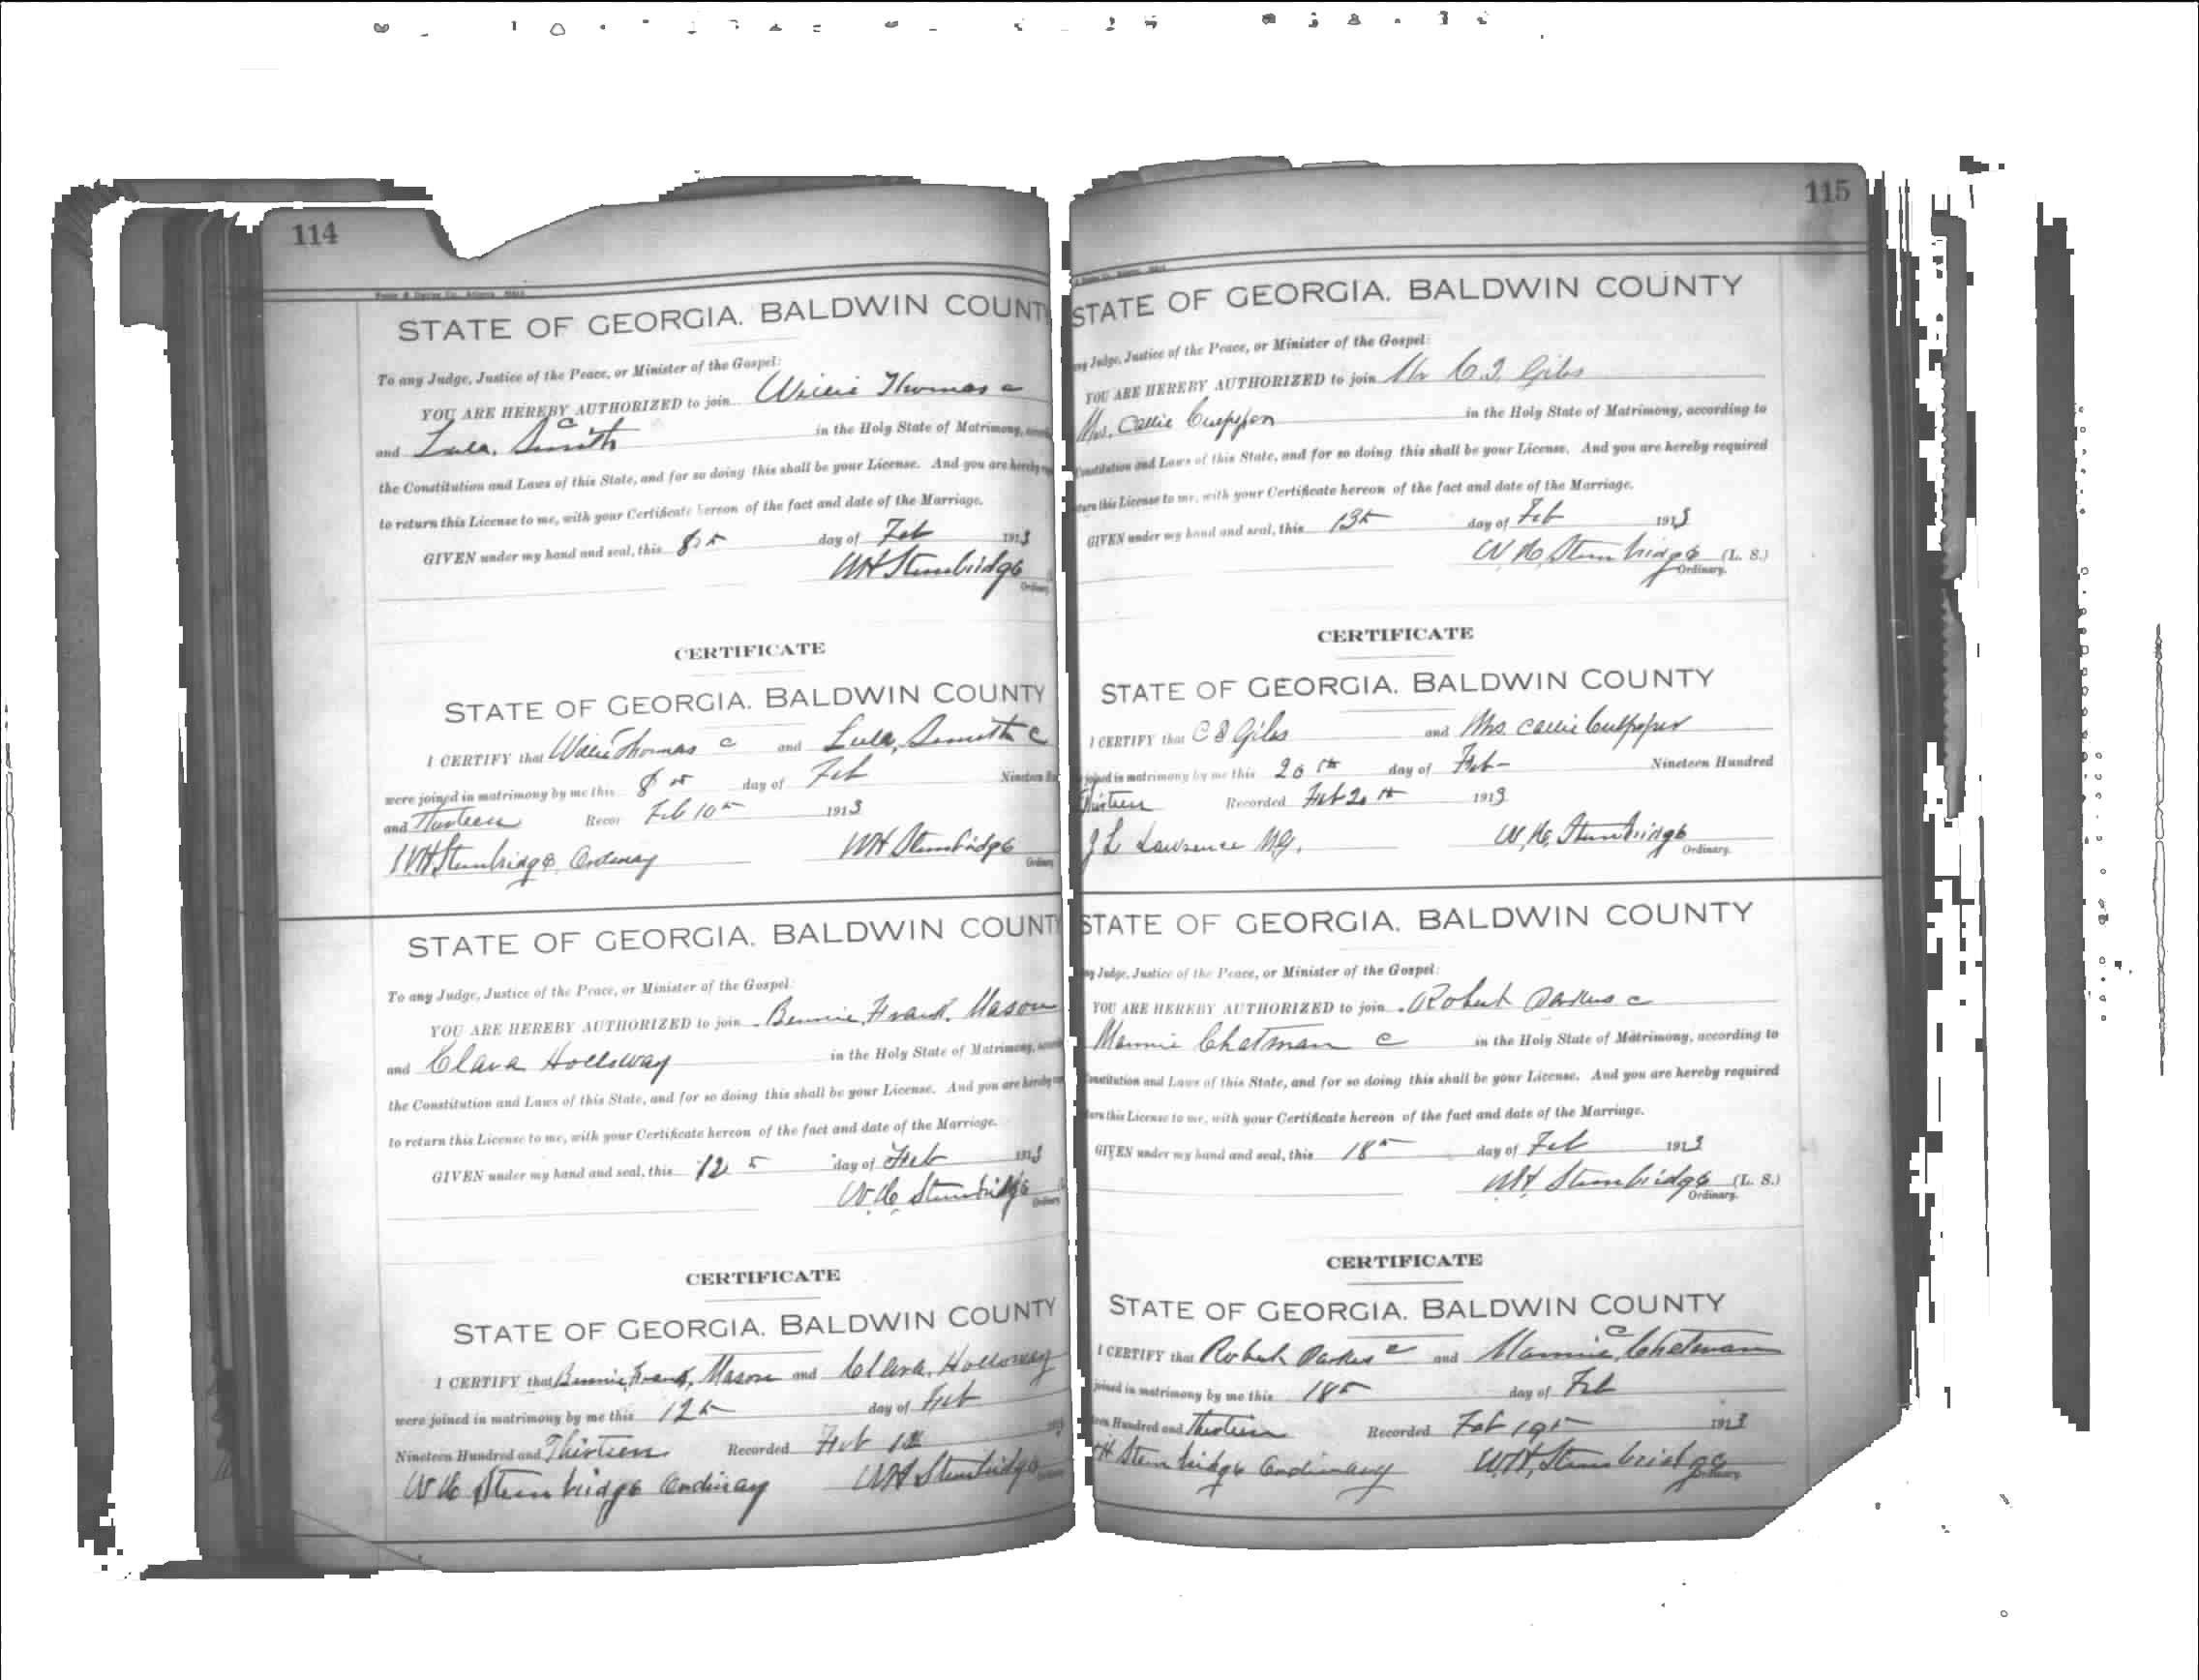 114
STATE OF GEORGIA. BALDWIN COUNTY
To any Judge, Justice of the Peace, or Minister of the Gospel:
YOU ARE HEREBY AUTHORIZED to join Willie Thomas c
and Lula Smith c in the Holy State of Matrimony,
the Constitution and Laws of this State, and for so doing this shall be your License. And you are hereby
to return this License to me, with your Certificate hereon of the fact and date of the Marriage.
GIVEN under my hand and seal, this 8th day of Feb 1913
WH Stembridge
Ordinary
CERTIFICATE
STATE OF GEORGIA. BALDWIN COUNTY
I CERTIFY that Willie Thomas c and Lula, Smith c
were joined in matrimony by me this 8th day of Feb Nineteen
and Thirteen Recor Feb 10th 1913
WH Stembridge Ordinary WH Stembridge
Ordinary
STATE OF GEORGIA. BALDWIN COUNTY
To any Judge, Justice of the Peace, or Minister of the Gospel:
YOU ARE HEREBY AUTHORIZED to join Bennie Frank Mason
and Clara Holloway in the Holy State of Matrimony,
the Constitution and Laws of this State, and for so doing this shall be your License. And you are hereby
to return this License to me, with your Certificate hereon of the fact and date of the Marriage.
GIVEN under my hand and seal, this 12th day of Feb 1913
W. H. Stembridge
Ordinary
CERTIFICATE
STATE OF GEORGIA. BALDWIN COUNTY
I CERTIFY that Bennie Frank Mason and Clara Holloway
were joined in matrimony by me this 12th day of Feb
Nineteen Hundred and Thirteen Recorded Feb
W H Stembridge Ordinary WH Stembridge
115
STATE OF GEORGIA. BALDWIN COUNTY
Judge, Justice of the Peace, or Minister of the Gospel:
YOU ARE HEREBY AUTHORIZED to join Mr C. Giles
Mrs. Callie Culpepper in the Holy State of Matrimony, according to
Constitution and Laws of this State, and for so doing this shall be your License. And you are hereby required
this License to me, with your Certificate hereon of the fact and date of the Marriage.
GIVEN under my hand and seal, this 13th day of Feb 1913
W. H. Stembridge (L. S.)
Ordinary.
CERTIFICATE
STATE OF GEORGIA. BALDWIN COUNTY
I CERTIFY that C Giles and Mrs. Callie Culpepper
joined in matrimony by me this 20th day of Feb- Nineteen Hundred
Thirteen Recorded Feb 20th 1913
J L Lawrence M.G. W. H. Stembridge
Ordinary.
STATE OF GEORGIA. BALDWIN COUNTY
Judge, Justice of the Peace, or Minister of the Gospel:
YOU ARE HEREBY AUTHORIZED to join Robert Parkes c
Mannie Chatman c in the Holy State of Matrimony, according to
Constitution and Laws of this State, and for so doing this shall be your License. And you are hereby required
this License to me, with your Certificate hereon of the fact and date of the Marriage.
GIVEN under my hand and seal, this 18th day of Feb 1913
WH Stembridge (L. S.)
Ordinary.
CERTIFICATE
STATE OF GEORGIA. BALDWIN COUNTY
I CERTIFY that Robert Parkes c and Mannie c Chatman
joined in matrimony by me this 18th day of Feb
Hundred and Thirteen Recorded Feb 19th 1913
H Stembridge Ordinary WH, Stembridge